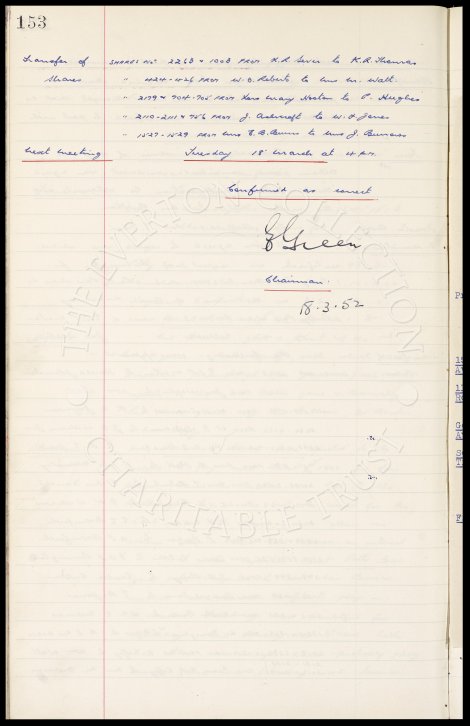 153
Transfer of Shares Nos. 2268 & 1008 from K.R. to K.R. Thomas
Shares " 424-426 from W.D. Roberts to Mrs M. Watt.
" 2179 & 704-705 from May Horton to P. Hughes
" 2110-2111 & 756 from J. Ashcroft to W. Jones
" 1527-1529 from Mrs E.B. to Mrs J.
Next meeting Tuesday 18 March at 4 pm.
Confirmed as correct
E Green
Chairman.
18.3.52
THE EVERTON COLLECTION
CHARITABLE TRUST